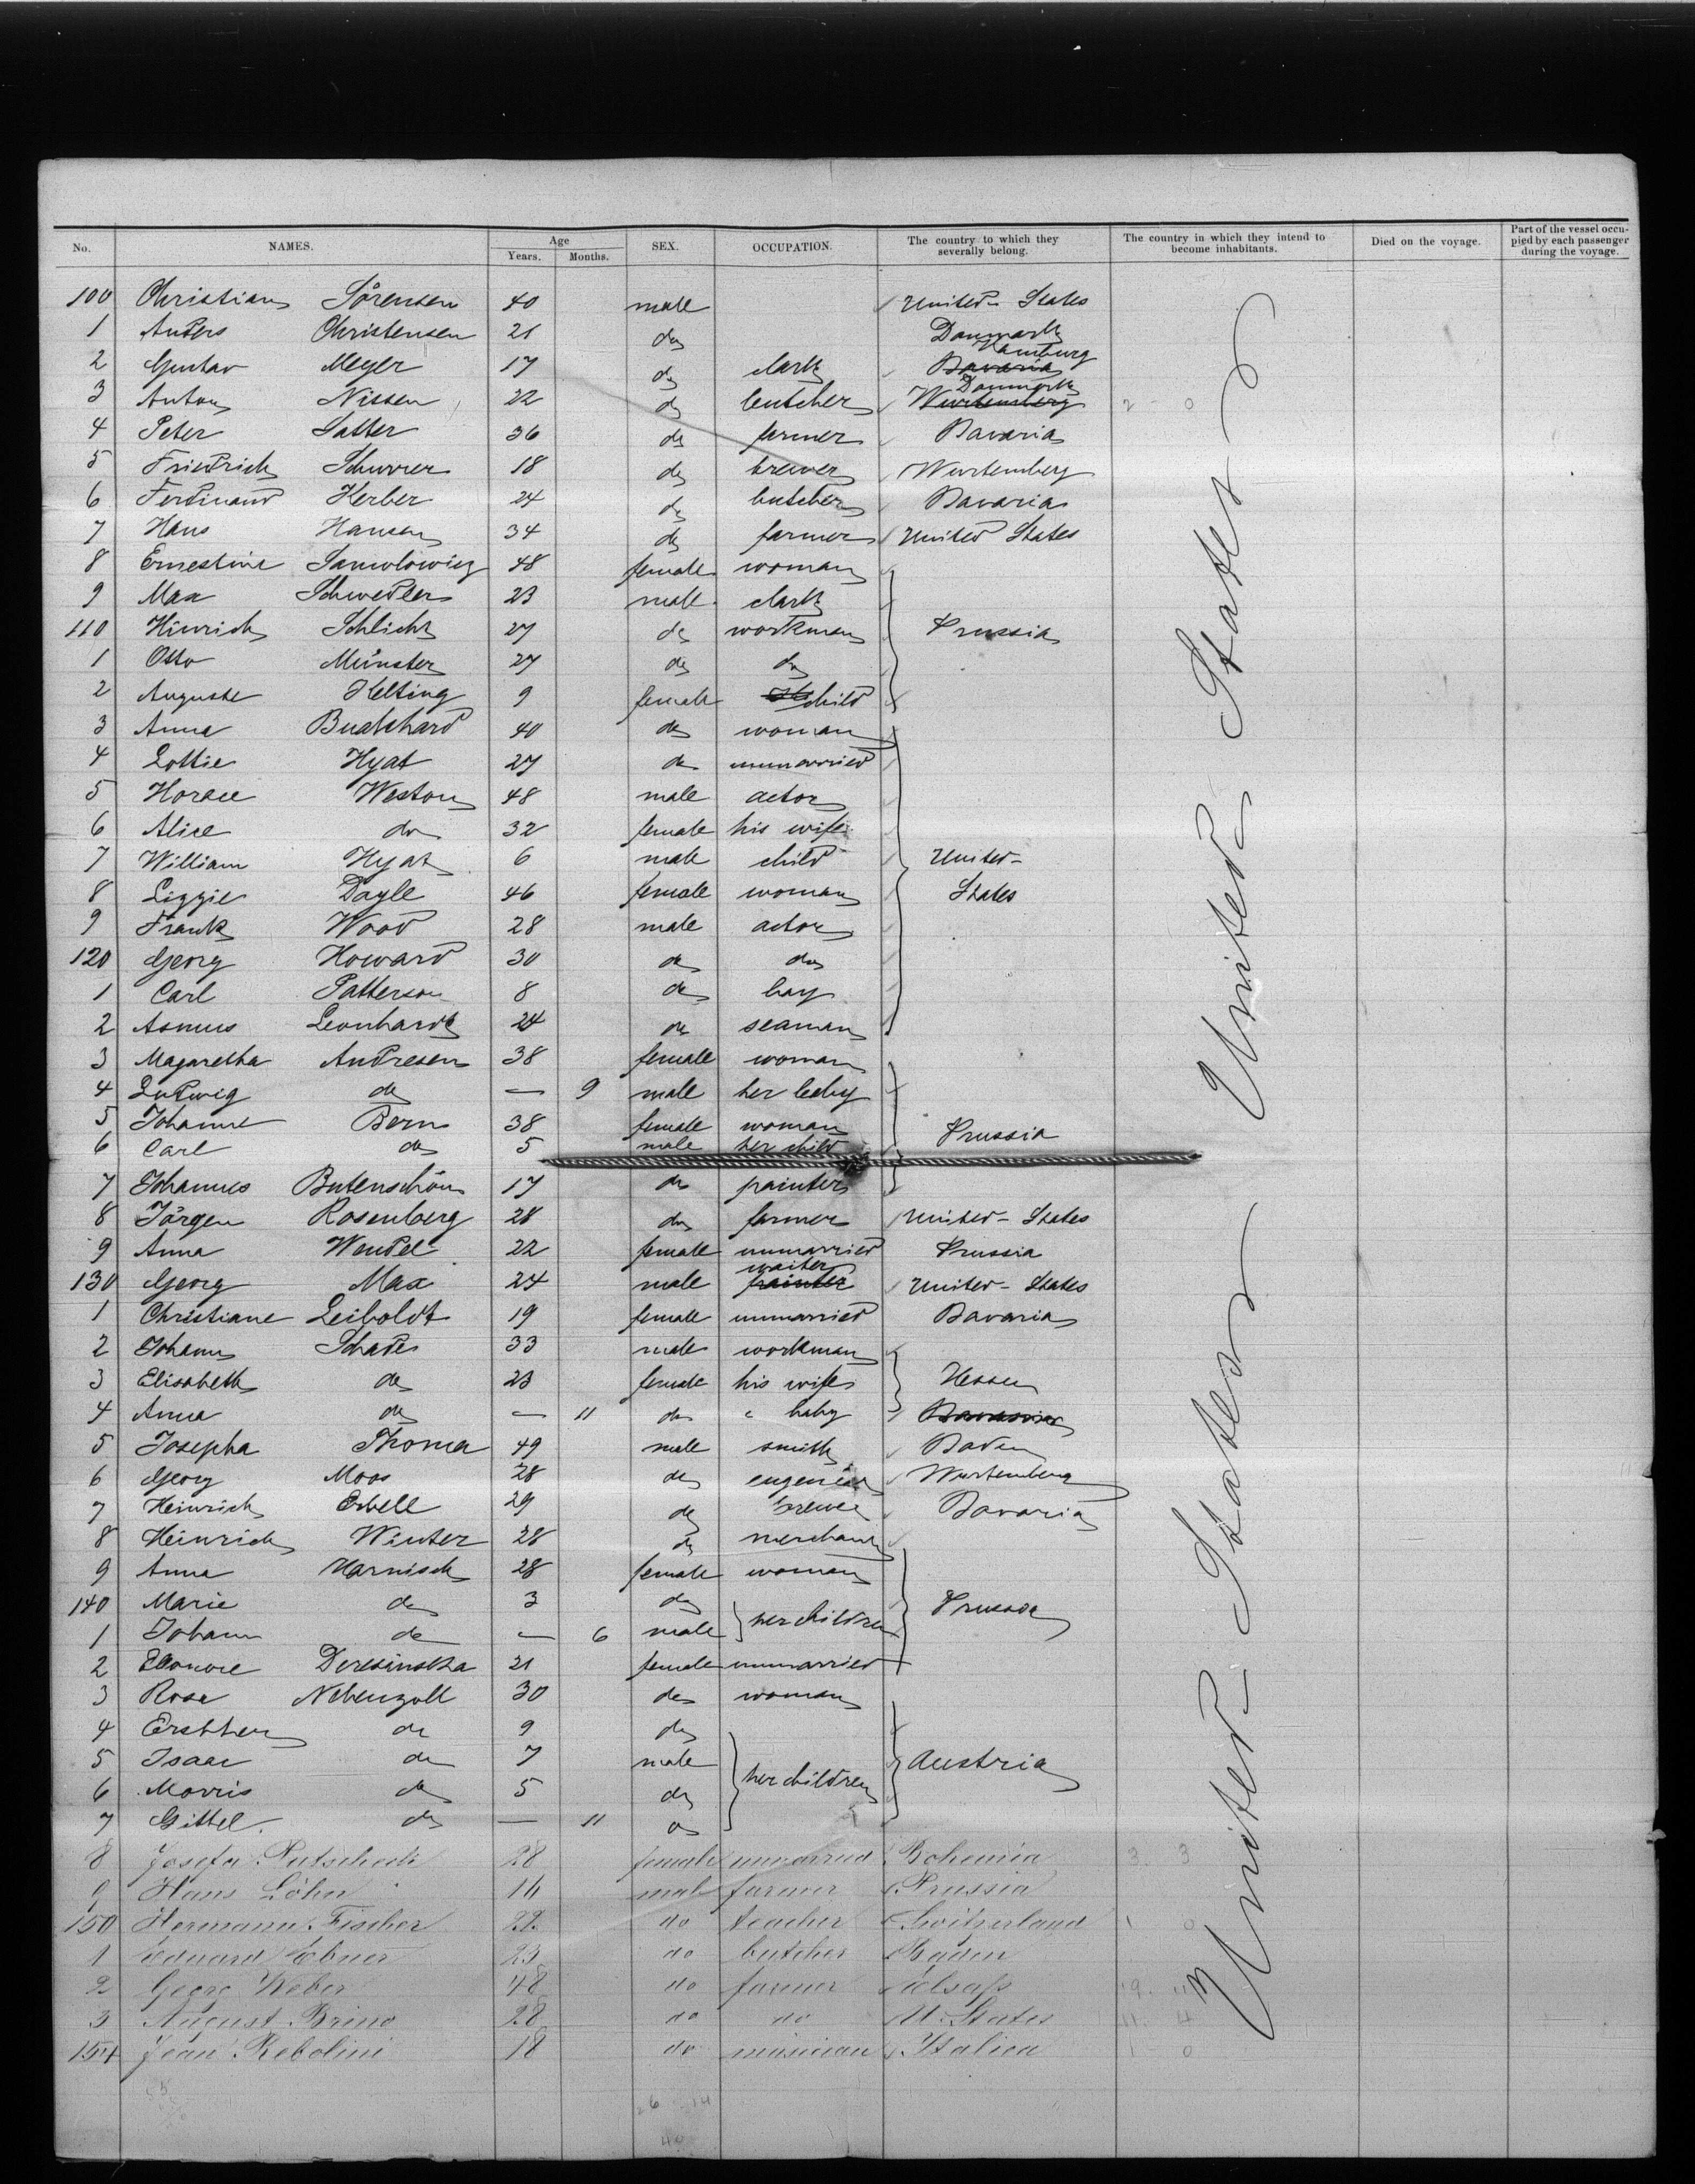 No. NAMES. Age Years. Months. SEX. OCCUPATION. The country to which they severally belong. The country in which they intend to become inhabitants. Died on the voyage. Part of the vessel occupied by each passenger during the voyage.
100 Christian Sörensen 40 male United States
1 Anders Christensen 21 do Danmark
2 Gustav Meyer 17 do clark Bavaria Hamburg
3 Anton Nissen 22 do butcher Wurtemberg Danmark 2 - 0
4 Peter Satter 36 do farmer Bavaria
5 Friedrich Schurrer 18 do brewer Wurtemberg
6 Ferdinand Herber 24 do butcher Bavaria
7 Hans Hansen 34 do farmer United States
8 Ernestine 48 female woman
9 Max Schwedler 23 male clark
110 Hinrich Schlicht 27 do workman Prussia
1 Otto Münster 27 do do
2 Auguste Helting 9 female child
3 Anna 40 do woman
4 Lottie Hyat 27 do unmarried
5 Horace Weston 48 male actor
6 Alice do 32 female his wife
7 William Hyat 6 male child United
8 Lizzie Dayle 46 female woman States
9 Frank Wood 28 male actor
120 Georg Howard 30 do do
1 Carl Patterson 8 do boy
2 Asmus Leonhardt 24 do seaman
3 Magaretha Andresen 38 female woman
4 Ludwig do — 9 male her baby
5 Johanne Born 38 female woman Prussia
6 Carl do 5 male her child
7 Johannes Butenschön 17 do painter
8 Jörgen Rosenberg 28 do farmer United States
9 Anna Wendel 22 female unmarried Prussia
130 Georg Max 24 male painter waiter United States
1 Christiane Leiboldt 19 female unmarried Bavaria
2 Johann Schade 33 male workman
3 Elisabeth do 23 female his wife Hessen
4 Anna do — 11 do " baby Bavaria
5 Josepha Thoma 49 male smith Baden
6 Georg Moos 28 do Wurtemberg
7 Heinrich 29 do brewer Bavaria
8 Heinrich Winter 28 do merchant
9 Anna Harnisch 28 female woman
140 Marie do 3 do her children Prussia
1 Johann do — 6 male
2 Eleonore Deresinska 21 female unmarried
3 Rosa Nebenzoll 30 do woman
4 do 9 do
5 Isaac do 7 male her children Austria
6 Morris do 5 do
7 Gittel do — 11 do
8 Josefa 28 female unmarried Bohemia 3. 3
9 Hans Löhn 16 male farmer Prussia
150 Hermann Fischer 22 do teacher Switzerland 1 0
1 Eduard Ebner 23 do butcher Baden
2 Georg Weber 48 do farmer Elsaß
3 August Brino 28 do do U. States 11. 4
154 Jean Rebolini 18 do musician Italien 1 0
United States
United States